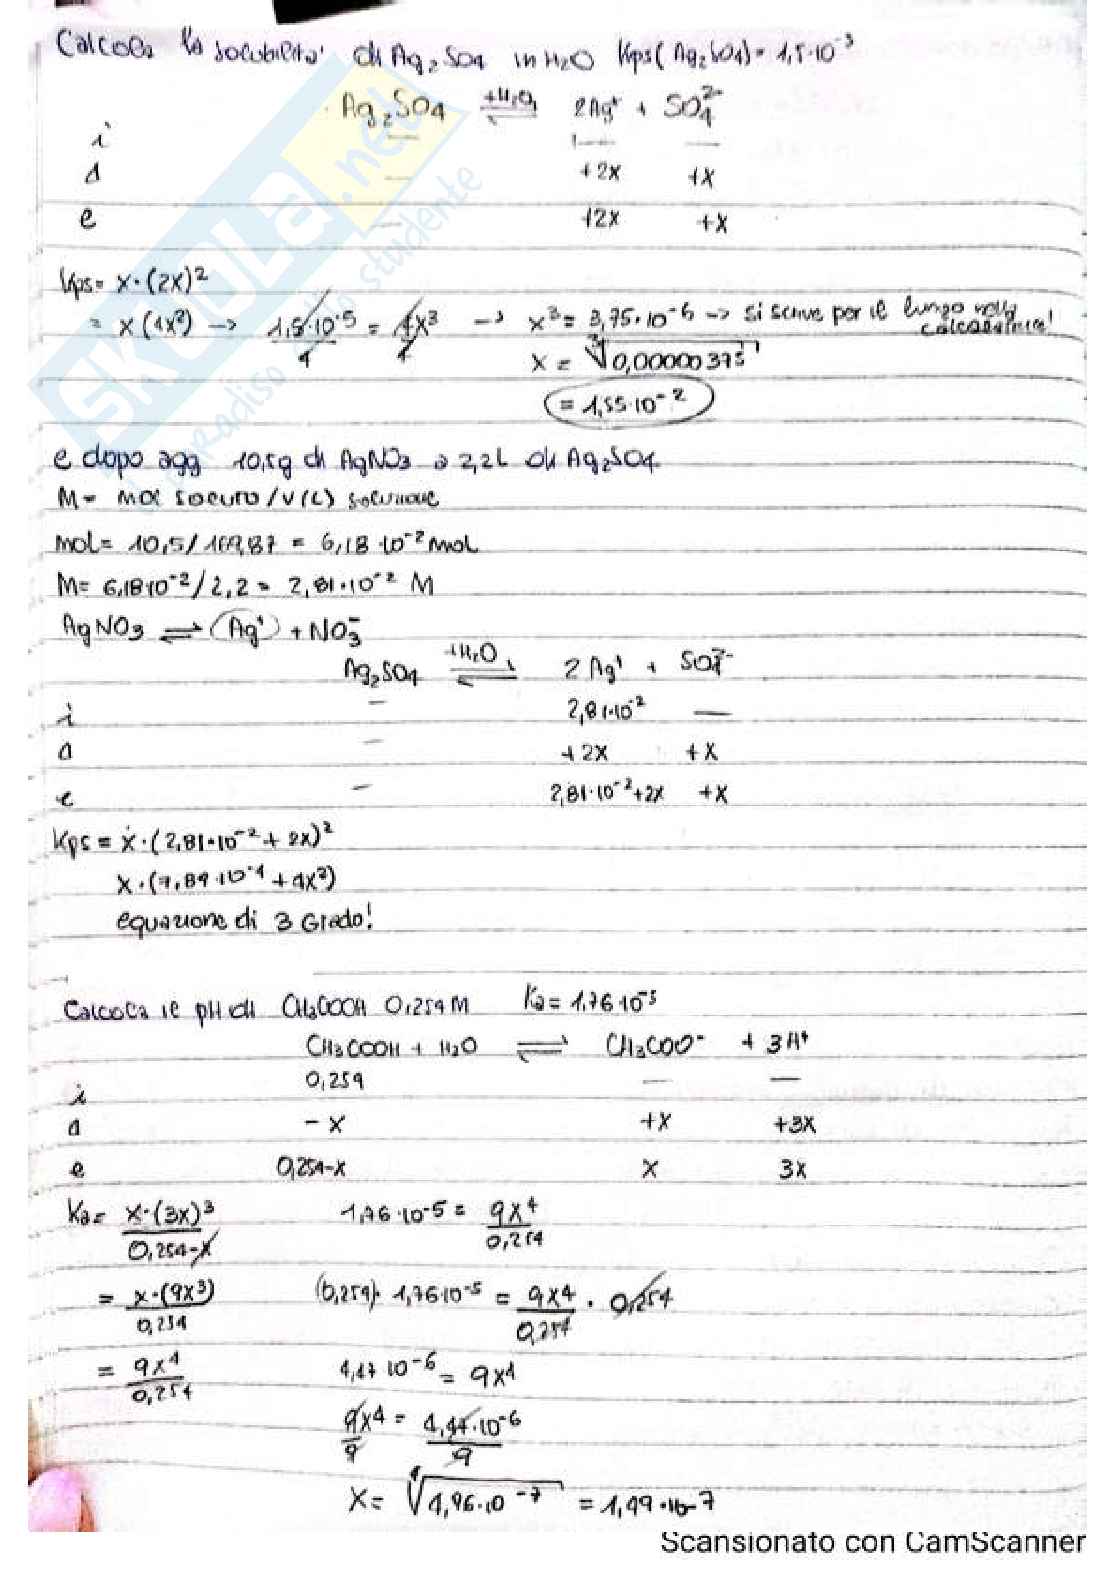 Calcola la solubilità di Ag2SO4 in H2O Kps(Ag2SO4)= 1,5·10⁻⁵
Ag2SO4 +H2O ⇌ 2Ag⁺ + SO4²⁻
i — — —
Δ — +2x +x
e — +2x +x
Kps= x·(2x)²
= x(4x²) → 1,5·10⁻⁵/4 = 4x³/4 → x³= 3,75·10⁻⁶ → si scrive per il lungo nella calcolatrice!
x = ³√0,00000375
= 1,55·10⁻²
e dopo agg 10,5g di AgNO3 a 2,2L di Ag2SO4
M= mol soluto/V(L) soluzione
mol= 10,5/169,87 = 6,18·10⁻² mol
M= 6,18·10⁻²/2,2= 2,81·10⁻² M
AgNO3 ⇌ Ag⁺ + NO3⁻
Ag2SO4 +H2O ⇌ 2Ag⁺ + SO4²⁻
i — 2,81·10⁻² —
Δ — +2x +x
e — 2,81·10⁻²+2x +x
Kps= x·(2,81·10⁻²+2x)²
x·(7,89·10⁻⁴+4x²)
equazione di 3 Grado!
Calcola il pH di CH3COOH 0,254M Ka= 1,76·10⁻⁵
CH3COOH + H2O ⇌ CH3COO⁻ + 3H⁺
i 0,254 — —
Δ -x +x +3x
e 0,254-x x 3x
Ka= x·(3x)³/0,254-x 1,76·10⁻⁵= 9x⁴/0,254
= x·(9x³)/0,254 (0,254)·1,76·10⁻⁵= 9x⁴/0,254 · 0,254
= 9x⁴/0,254 4,47·10⁻⁶= 9x⁴
9x⁴/9= 4,47·10⁻⁶/9
x= ⁴√4,96·10⁻⁷ = 1,49·10⁻⁷
SKUOLA.net
il paradiso dello studente
Scansionato con CamScanner